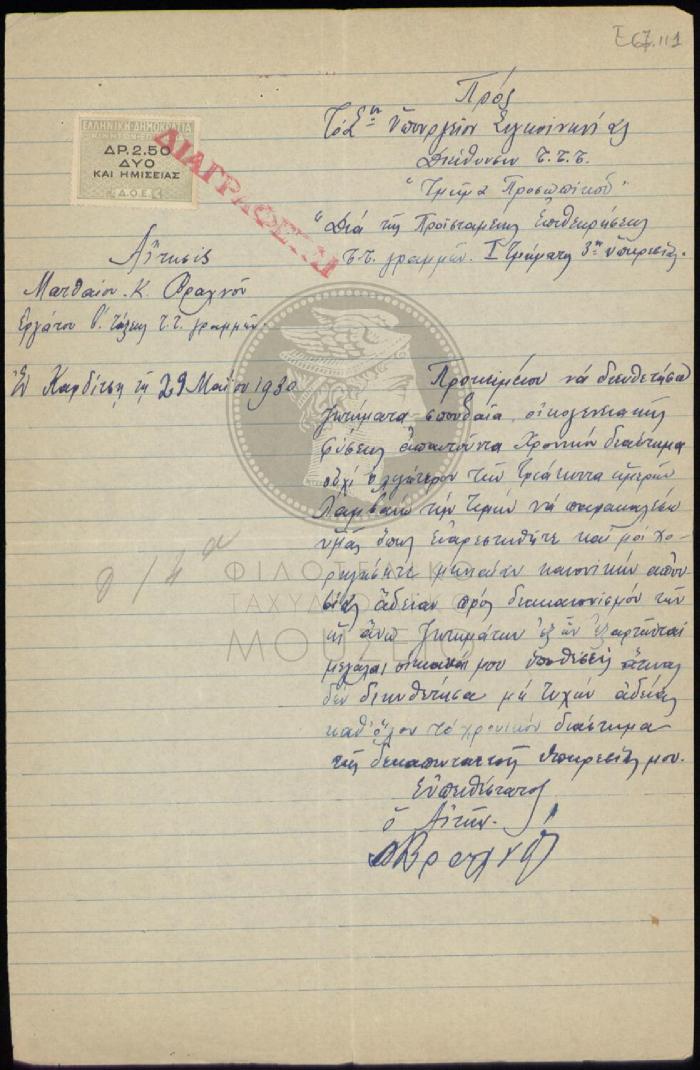 Ε67.111
Πρός
Τό Σον Ὑπουργεῖον Συγκοινωνίας
Διεύθυνσιν Τ.Τ.Τ.
"Τμῆμα Προσωπικοῦ"
"Διά τῆς Προϊσταμένης Ἐπιθεωρήσεως
Τ.Τ. γραμμῶν. Ι Τμήματος 3ης ὑπηρεσίας.
ΕΛΛΗΝΙΚΗ ΔΗΜΟΚΡΑΤΙΑ
ΔΡ. 2.50
ΔΥΟ
ΚΑΙ ΗΜΙΣΕΙΑΣ
Δ.Ο.Ε.
ΔΙΑΓΡΑΦΕΤΑΙ
Αἴτησις
Ματθαίου Κ. Βραχνοῦ
Ἐργάτου β' τάξεως τ.τ. γραμμῶν.
Ἐν Καρδίτσῃ τῇ 29 Μαΐου 1930
Προκειμένου νά διευθετήσω
ζητήματα σπουδαῖα οἰκογενειακῆς
φύσεως ἀπαιτοῦντα χρονικόν διάστημα
οὐχί ὀλιγώτερον τῶν τριάκοντα ἡμερῶν
Λαμβάνω τήν τιμήν νά παρακαλέσω
ὑμᾶς ὅπως εὐαρεστηθῆτε καί μοί χο-
ρηγήσητε μηνιαίαν κανονικήν ἀπου-
σίας ἄδειαν πρός διακανονισμόν τῶν
ὡς ἄνω ζητημάτων ἐξ ὧν ἐξαρτῶνται
μεγάλαι μου ὑποθέσεις ἅτινας
δέν διευθέτησα μή τυχών ἀδείας
καθ' ὅλον τό χρονικόν διάστημα
τῆς δεκαπενταετοῦς ὑπηρεσίας μου.
Εὐπειθέστατος
ὁ Αἰτῶν.
Βραχνός
ΦΙΛΟΤΕΛΙΚΟ
ΤΑΧΥΔΡΟΜΙΚΟ
ΜΟΥΣΕΙΟ